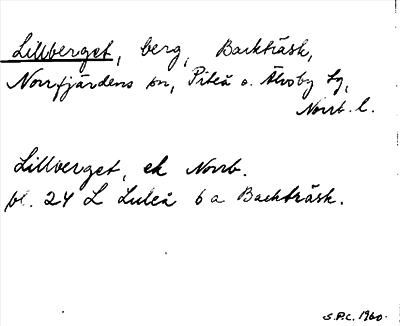 Lillberget, berg, Backträsk,
Norrfjärdens sn, Piteå o. Älvsby tg,
Norrb. l.
Lillberget, ek Norrb.
bl. 24 L Luleå 6 a Backträsk.
S.P.C. 1960.